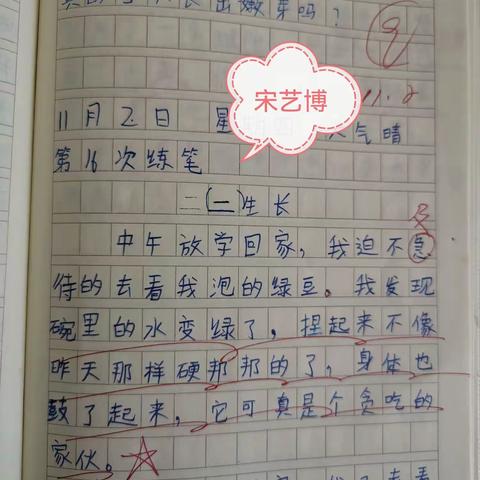 长出嫩芽吗?
11.2
宋艺博
11月2日 星 天气晴
第16次练笔
二(一)生长
中午放学回家,我迫不急
待的去看我泡的绿豆。我发现
碗里的水变绿了,捏起来不像
昨天那样硬邦邦的了,身体也
鼓了起来,它可真是个贪吃的
家伙。
去看